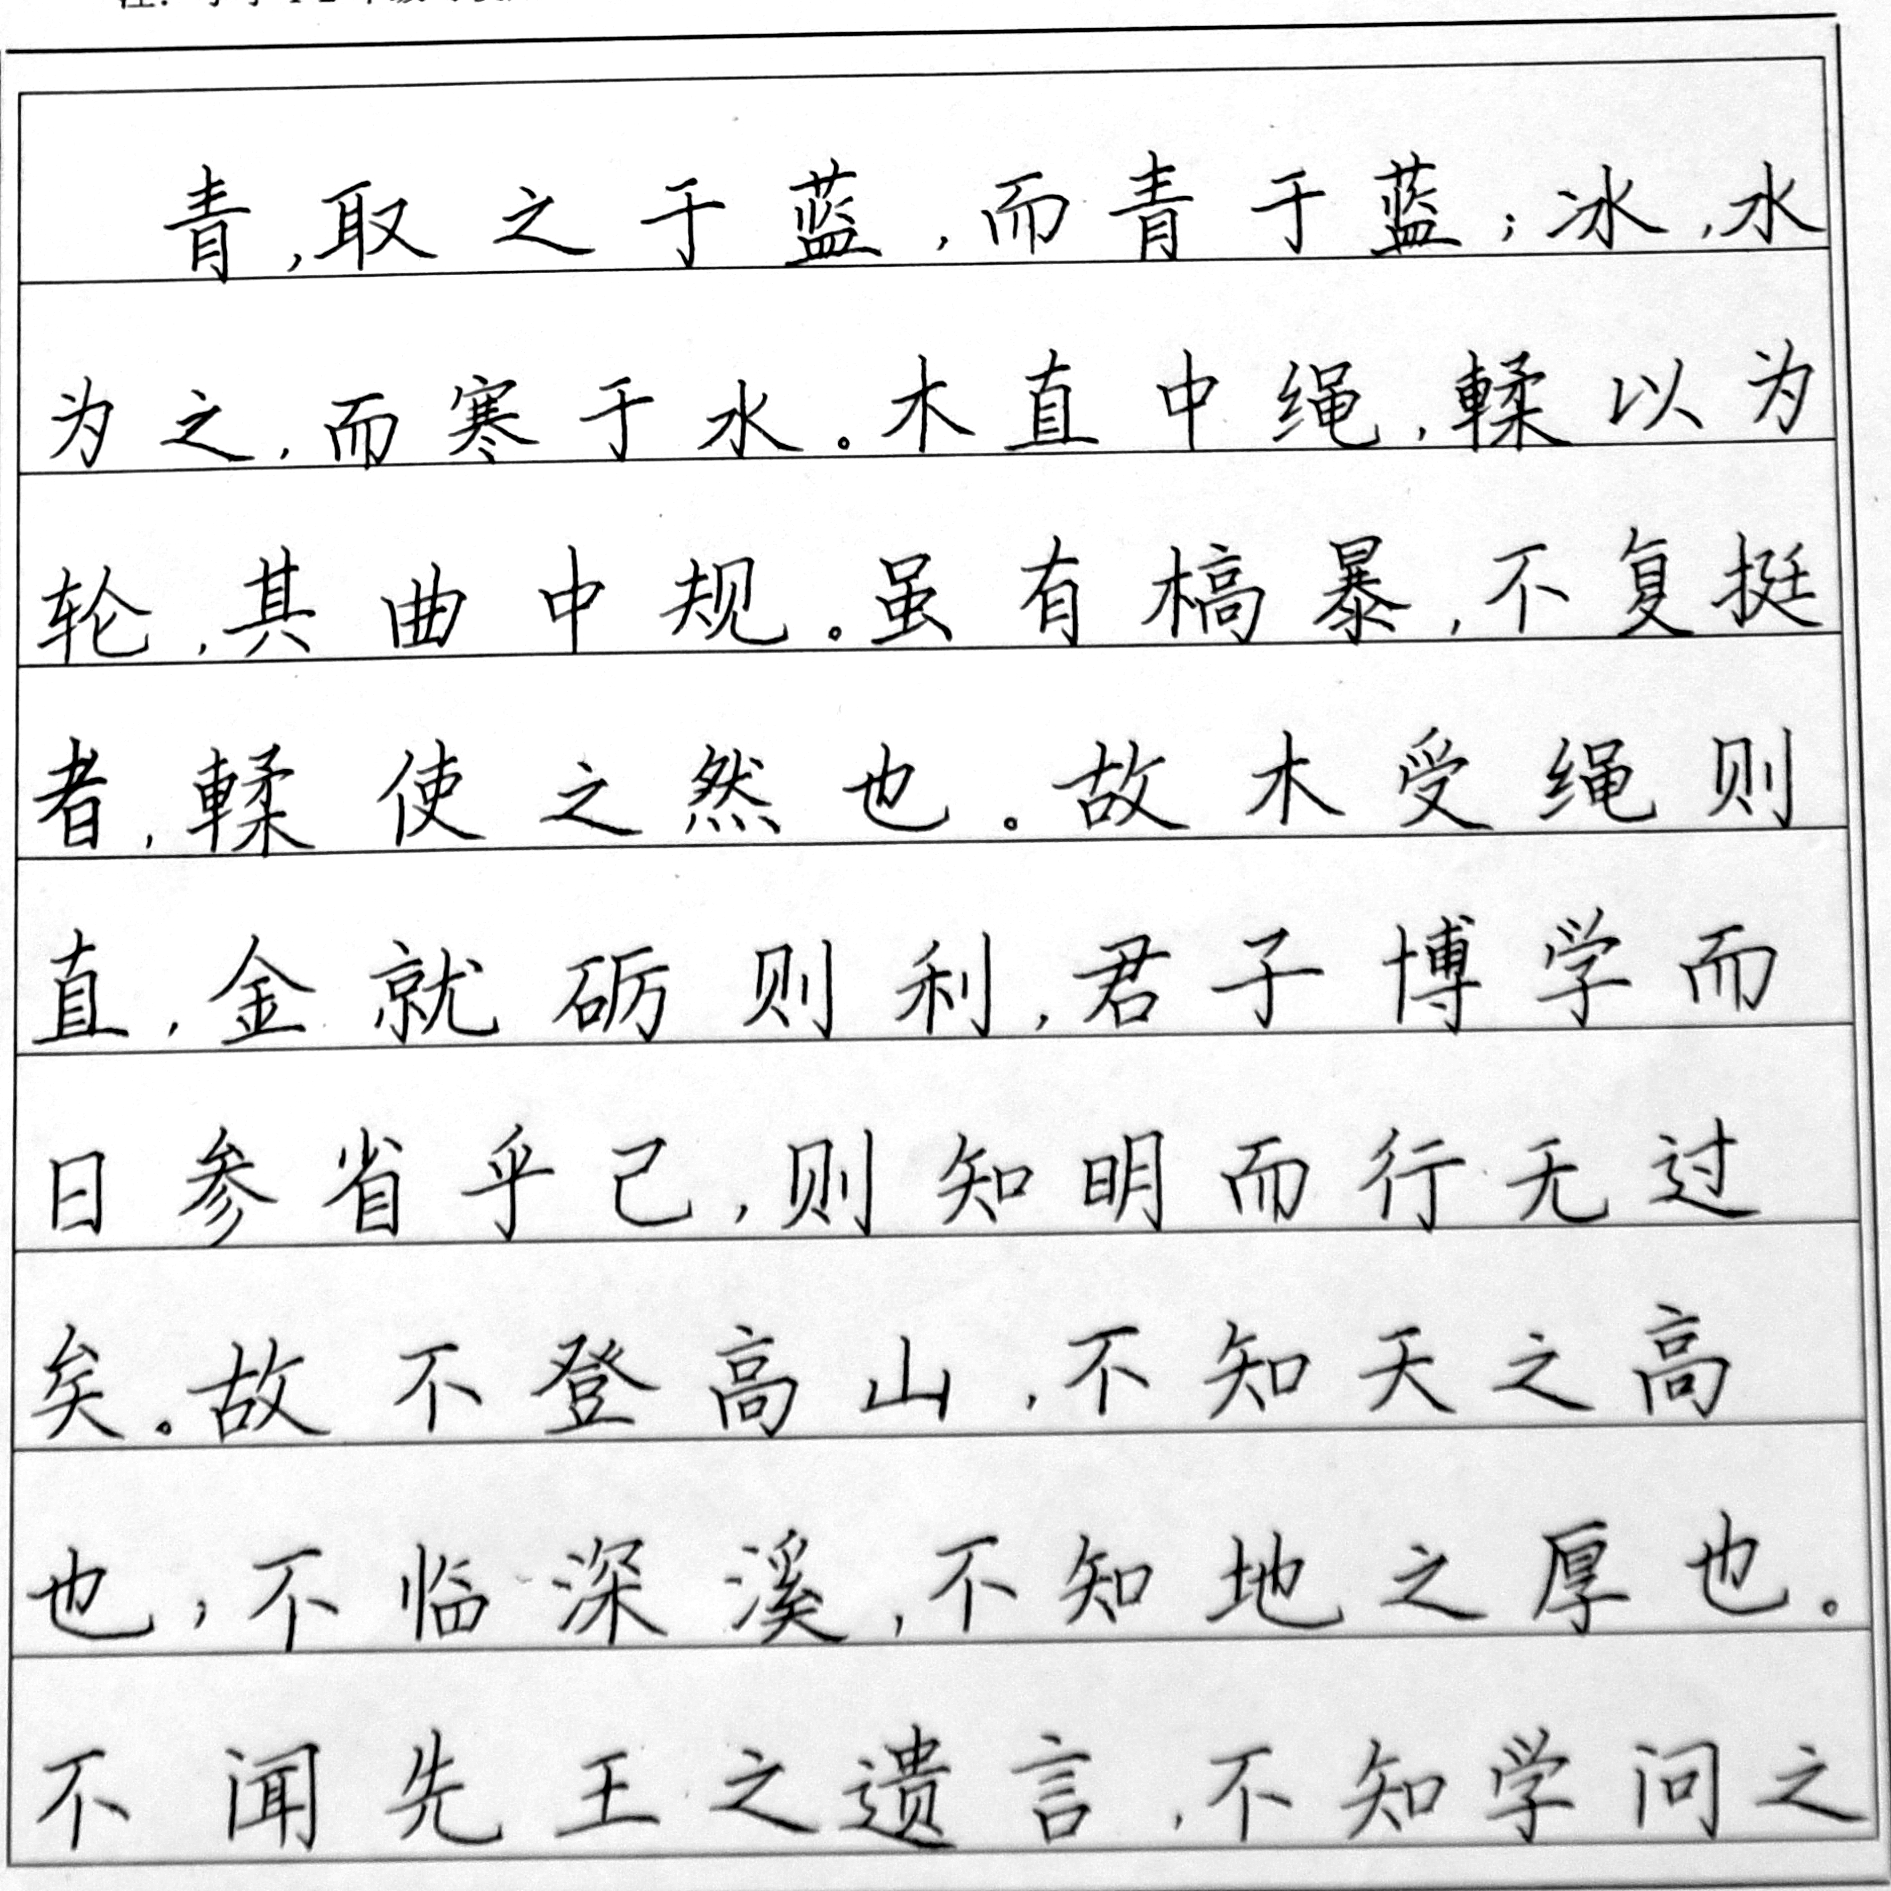 青,取之于蓝,而青于蓝;冰,水
为之,而寒于水。木直中绳,輮以为
轮,其曲中规。虽有槁暴,不复挺
者,輮使之然也。故木受绳则
直,金就砺则利,君子博学而
日参省乎己,则知明而行无过
矣。故不登高山,不知天之高
也,不临深溪,不知地之厚也。
不闻先王之遗言,不知学问之